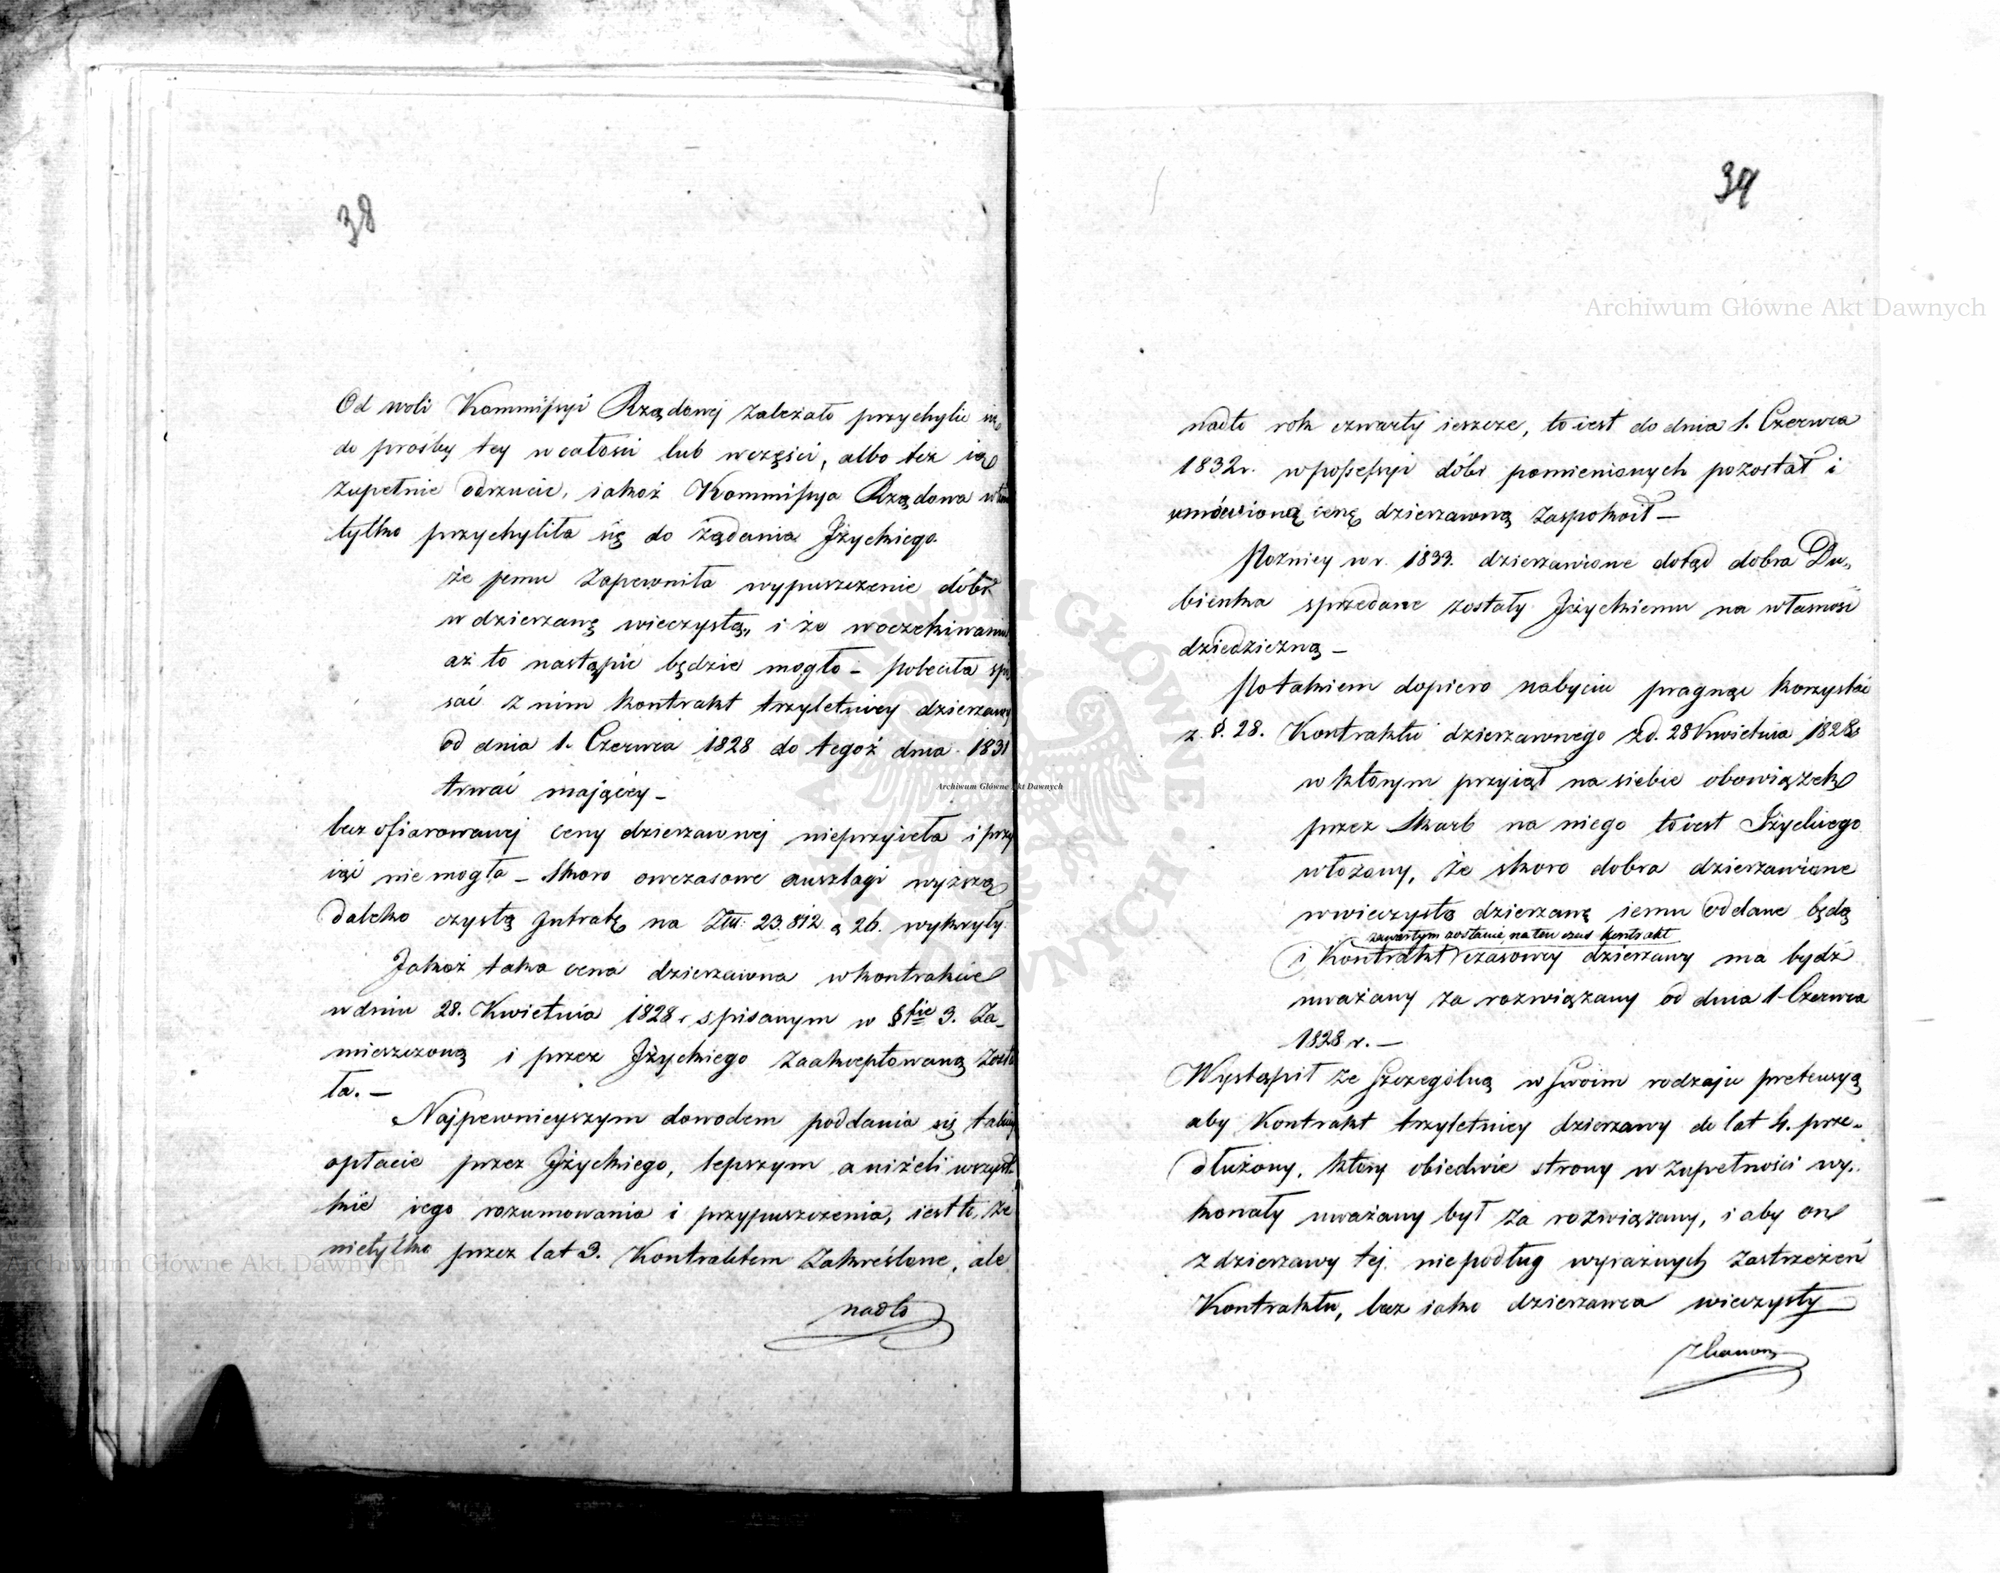 38
Od woli Kommissyi Rządowej zależało przychylić się
do prośby tey w całości lub w części, albo też ią
zupełnie odrzucić, iakoż Kommissya Rządowa
tylko przychyliła się do żądania Iżyckiego
że jemu zapewniła wypuszczenie dóbr
w dzierzawę wieczystą, i że w oczekiwaniu
aż to nastąpić będzie mogło – poleciła spi
sać z nim kontrakt trzyletniey dzierzawy
od dnia 1. Czerwca 1828 do tegoż dnia 1831
trwać maiącéy –
lecz ofiarowanej ceny dzierzawnej nieprzyięła i przy
iąć nie mogła – skoro owczasowe anszlagi wyższą
daleko czystą Intratę na Złt. 23.812 g 26. wykryły
Jakoż taka cena dzierzawna w kontrakcie
w dniu 28. Kwietnia 1828 r spisanym w §fie 3. Za-
mieszczoną i przez Iżyckiego zaakceptowaną zosta
ła. –
Najpewnieyszym dowodem poddania się takiey
opłacie przez Iżyckiego, lepszym aniżeli wszyst-
kie iego rozumowania i przypuszczenia, iest to, że
nietylko przez lat 3. Kontraktem zakreślone, ale
nadto
39
nadto rok czwarty ieszcze, to iest do dnia 1. Czerwca
1832 r. w possessyi dóbr pomienionych pozostał i
umówioną cenę dzierzawną zaspokoił –
Pozniey w r. 1833. dzierzawione dotąd dobra Du-
bienka sprzedane zostały Iżyckiemu na własność
dziedziczną –
Po takiem dopiero nabyciu pragnąc korzystać
z §. 28. Kontraktu dzierzawnego z d. 28 Kwietnia 1828
w którym przyiął na siebie obowiązek
przez Skarb na niego to iest Iżyckiego
włożony, że skoro dobra dzierzawione
w wieczystą dzierzawę iemu oddane będą
zawartym zostanie na ten czas kontrakt
i Kontrakt czasowey dzierzawy ma bydź
uważany za rozwiązany od dnia 1 Czerwca
1828 r. –
Wystąpił ze szczególną w swoim rodzaju pretensyą
aby Kontrakt trzyletniey dzierzawy do lat 4. prze-
dłużony, który obiedwie strony w zupełności wy-
konały uważany był za rozwiązany, i aby on
z dzierzawy tej niepodług wyraźnych zastrzeżeń
Kontraktu, lecz iako dzierzawca wieczysty
Archiwum Główne Akt Dawnych
Archiwum Główne Akt Dawnych
Archiwum Główne Akt Dawnych